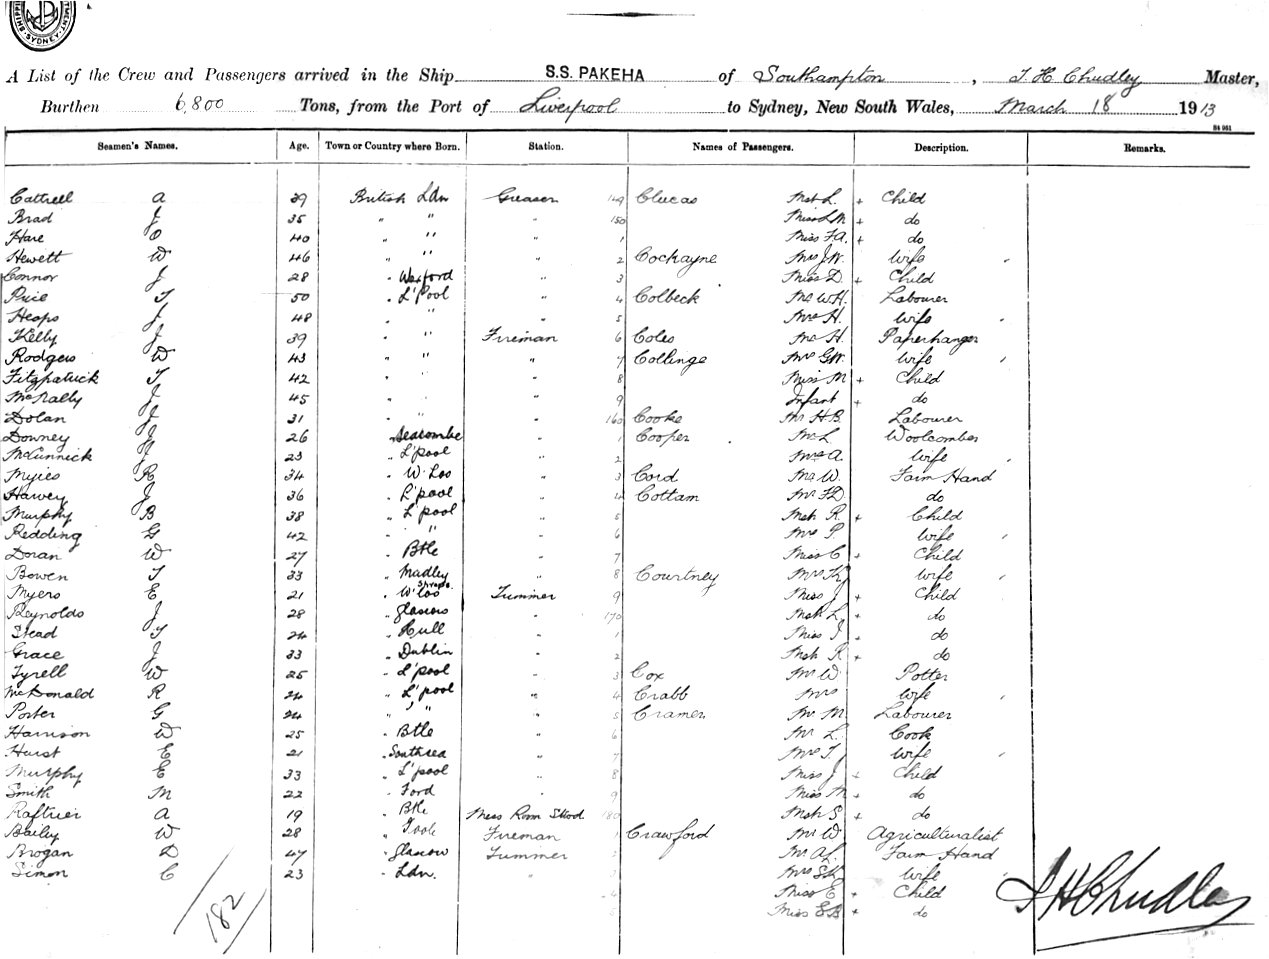 SYDNEY
A List of the Crew and Passengers arrived in the Ship S.S. PAKEHA of Southampton, T. H. Chudley Master,
Burthen 6,800 Tons, from the Port of Liverpool to Sydney, New South Wales, March 18 1913
Seamen's Names. Age. Town or Country where Born. Station. Names of Passengers. Description. Remarks.
Cattrell A 39 British Ldn Greaser 149 Clucas Mstr L. + Child
Brad J 35 " " " 150 Miss L.M. + do
Hare O 40 " " " 1 Miss F.A. + do
Hewett W 46 " " " 2 Cockayne Mrs J.W. Wife
Connor J 28 " Wexford " 3 Miss D. + Child
Price T 50 " L'Pool " 4 Colbeck Mr W.H. Labourer
Heaps J 48 " " " 5 Mrs H. Wife
Kelly J 39 " " Fireman 6 Coles Mr H. Paperhanger
Rodgers W 43 " " " 7 Collinge Mrs G.W. Wife
Fitzpatrick T 42 " " " 8 Miss M + Child
McNally J 45 " " " 9 Infant + do
Dolan J 31 " " " 160 Cooke Mr H.B. Labourer
Downey J 26 " Seacombe " 1 Cooper Mr L Woolcomber
McCunnick J 23 " L'pool " 2 Mrs A. Wife
Myies R 34 " W. Loo " 3 Cord Mr W. Farm Hand
Harvey J 36 " L'pool " 4 Cottam Mr F.D. do
Murphy B 38 " L'pool " 5 Mstr R. + Child
Redding G 42 " " " 6 Mrs P. Wife
Doran W 27 " Btle " 7 Miss C + Child
Bowen T 33 " Madley " 8 Courtney Mrs Wife
Myers E 21 " W. Loo Trimmer 9 Miss J + Child
Reynolds J 28 " Glascow " 170 Mstr L. + do
Stead T 24 " Hull " 1 Miss I. + do
Grace J 33 " Dublin " 2 Mstr R + do
Tyrell W 25 " L'pool " 3 Cox Mr W. Potter
McDonald R 24 " L'pool " 4 Crabb Mrs Wife
Porter G 24 " " " 5 Cramer Mr M. Labourer
Harrison W 25 " Btle " 6 Mr L. Cook
Hurst E 21 " Southsea " 7 Mrs T. Wife
Murphy E 33 " L'pool " 8 Miss J + Child
Smith M 22 " Ford " 9 Miss M + do
Raftrier A 19 " Btle Mess Room Stwd 180 Mstr S. + do
Bailey W 28 " Poole Fireman 1 Crawford Mr W. Agriculturalist
Brogan D 47 " Glascow Trimmer 2 Mr A.L. Farm Hand
Simon C 23 " Ldn. " 3 Mrs Wife
4 Miss E + Child
5 Miss E.B. + do
182
T H Chudley